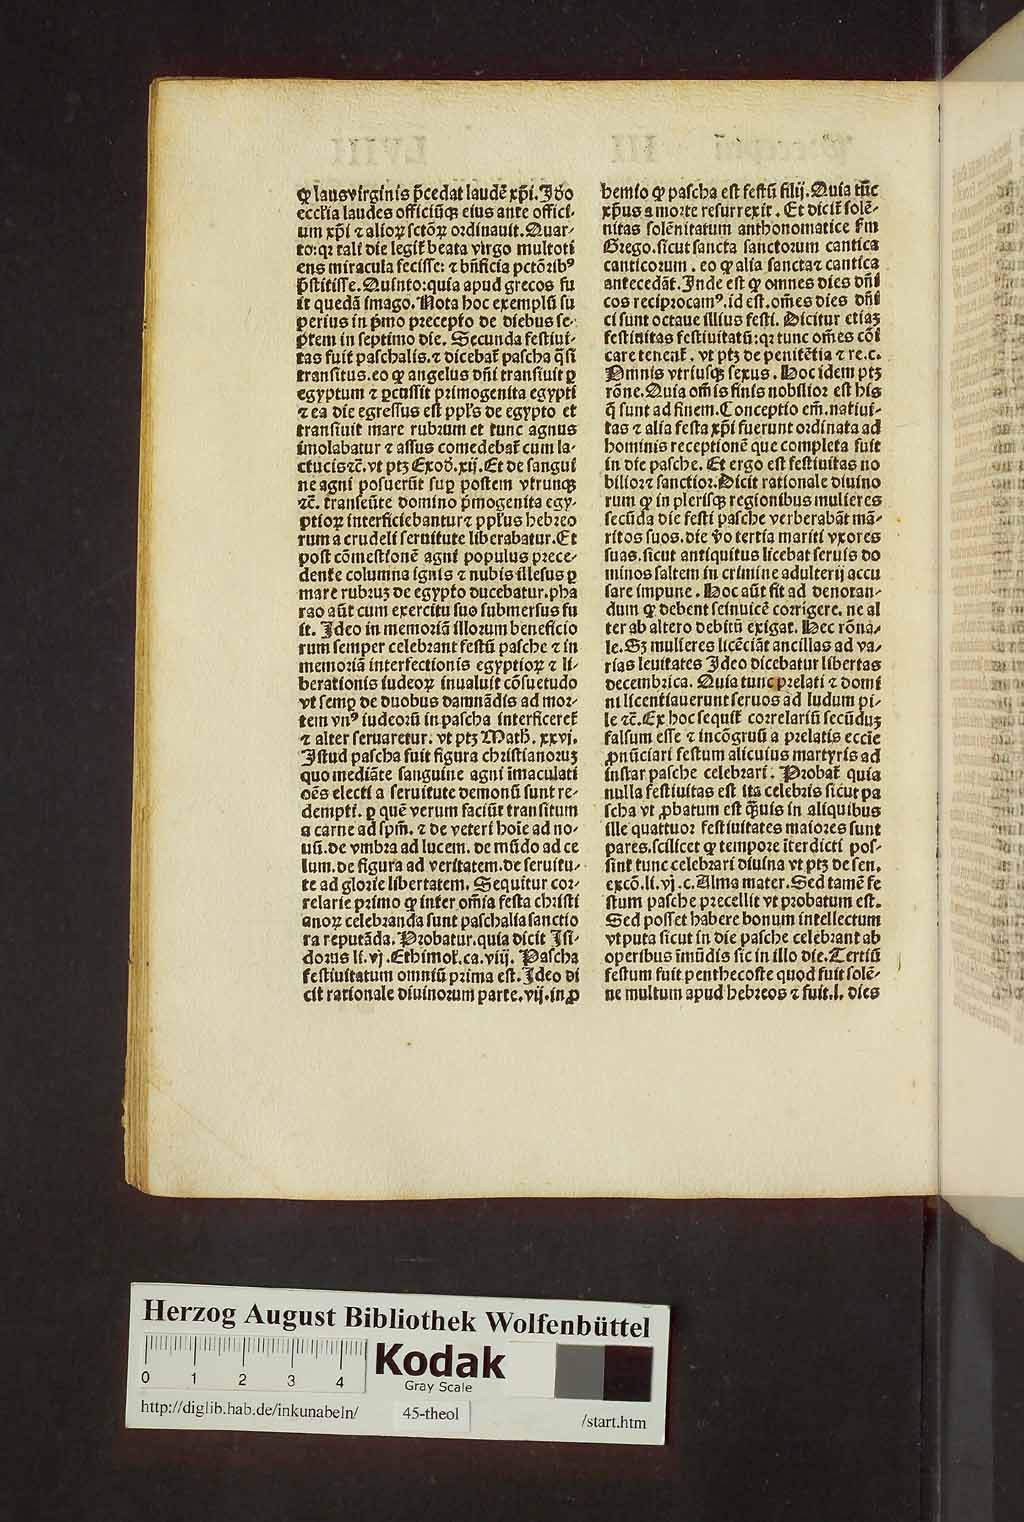 ꝙ lausvirginis p̄cedat laudē xp̄i. Jdo
eccl'ia laudes officiūqꝫ eius ante offici-
um xp̄i ⁊ alioꝝ sctōꝝ ordinauit. Quar-
to: qꝛ tali die legit̄ beata virgo multoti
ens miracula fecisse: ⁊ bn̄ficia pctōribꝰ
p̄stitisse. Quinto: quia apud grecos fu
it quedā imago. Nota hoc exemplū su
perius in p̄mo precepto de diebus se-
ptem in septimo die. Secunda festiui-
tas fuit paschalis. ⁊ dicebat̄ pascha q̄si
transitus. eo ꝙ angelus dn̄i transiuit ꝑ
egyptum ⁊ ꝑcussit primogenita egypti
⁊ ea die egressus est ppl's de egypto et
transiuit mare rubrum et tunc agnus
imolabatur ⁊ assus comedebat̄ cum la-
ctucis ⁊c̄. vt ptꝫ Exod̄. xij. Et de sangui
ne agni posuerūt suꝑ postem vtrunqꝫ
⁊c̄. transeūte domino p̄mogenita egy-
ptioꝝ interficiebantur ⁊ ppl'us hebreo
rum a crudeli seruitute liberabatur. Et
post cōmestionē agni populus prece-
dente columna ignis ⁊ nubis illesus ꝑ
mare rubruꝫ de egypto ducebatur. pha
rao aūt cum exercitu suo submersus fu
it. Jdeo in memoriā illorum beneficio
rum semper celebrant festū pasche ⁊ in
memoriā interfectionis egyptioꝝ ⁊ li-
berationis iudeoꝝ inualuit cōsuetudo
vt semꝑ de duobus damnādis ad mor-
tem vnꝰ iudeorū in pascha interficeret̄
⁊ alter seruaretur. vt ptꝫ Math̄. xxvj.
Jstud pascha fuit figura christianoruꝫ
quo mediāte sanguine agni īmaculati
oēs electi a seruitute demonū sunt re-
dempti. ꝑ quē verum faciūt transitum
a carne ad spm̄. ⁊ de veteri hoīe ad no-
uū. de vmbra ad lucem. de mūdo ad ce
lum. de figura ad veritatem. de seruitu-
te ad glorie libertatem. Sequitur cor-
relarie primo ꝙ inter om̄ia festa christi
anoꝝ celebranda sunt paschalia sanctio
ra reputāda. Probatur. quia dicit Jsi-
dorus li. vj. Ethimol̄. ca. viij. Pascha
festiuitatum omniū prima est. Jdeo di
cit rationale diuinorum parte. vij. in ꝓ
hemio ꝙ pascha est festū filij. Quia tūc
xp̄us a morte resurrexit. Et dicit̄ solē-
nitas solēnitatum anthonomatice fm̄
Grego. sicut sancta sanctorum cantica
canticorum. eo ꝙ alia sancta ⁊ cantica
antecedāt. Jnde est ꝙ omnes dies dn̄i
cos reciprocamꝰ. id est. om̄es dies dn̄i
ci sunt octaue illius festi. Dicitur etiaꝫ
festiuitas festiuitatū: qꝛ tunc om̄es cōi
care tenent̄. vt ptꝫ de penitētia ⁊ re. c.
Omnis vtriusqꝫ sexus. Hoc idem ptꝫ
rōne. Quia om̄is finis nobilior est his
q̄ sunt ad finem. Conceptio em̄. natiui-
tas ⁊ alia festa xp̄i fuerunt ordinata ad
hominis receptionē que completa fuit
in die pasche. Et ergo est festiuitas no
bilior ⁊ sanctior. Dicit rationale diuino
rum ꝙ in plerisqꝫ regionibus mulieres
secūda die festi pasche verberabāt mā-
ritos suos. die v̄o tertia mariti vxores
suas. sicut antiquitus licebat seruis do
minos saltem in crimine adulterij accu
sare impune. Hoc aūt fit ad denotan-
dum ꝙ debent seinuicē corrigere. ne al
ter ab altero debitū exigat. Hec rōna-
le. Sꝫ mulieres licēciāt ancillas ad va-
rias leuitates Jdeo dicebatur libertas
decembrica. Quia tunc prelati ⁊ domi
ni licentiauerunt seruos ad ludum pi-
le ⁊c̄. Ex hoc sequit̄ correlariū secūduꝫ
falsum esse ⁊ incōgruū a prelatis eccīe
ꝓnūciari festum alicuius martyris ad
instar pasche celebrari. Probat̄ quia
nulla festiuitas est ita celebris sicut pa
scha vt ꝓbatum est q̄uis in aliquibus
ille quattuor festiuitates maiores sunt
pares. scilicet ꝙ tempore īterdicti pos-
sint tunc celebrari diuina vt ptꝫ de sen.
excō. li. vj. c. Alma mater. Sed tamē fe
stum pasche precellit vt probatum est.
Sed posset habere bonum intellectum
vtputa sicut in die pasche celebrant ab
operibus īmūdis sic in illo die. Tertiū
festum fuit penthecoste quod fuit solē-
ne multum apud hebreos ⁊ fuit. l. dies
Herzog August Bibliothek Wolfenbüttel
0 1 2 3 4
Kodak
Gray Scale
http://diglib.hab.de/inkunabeln/
45-theol
/start.htm